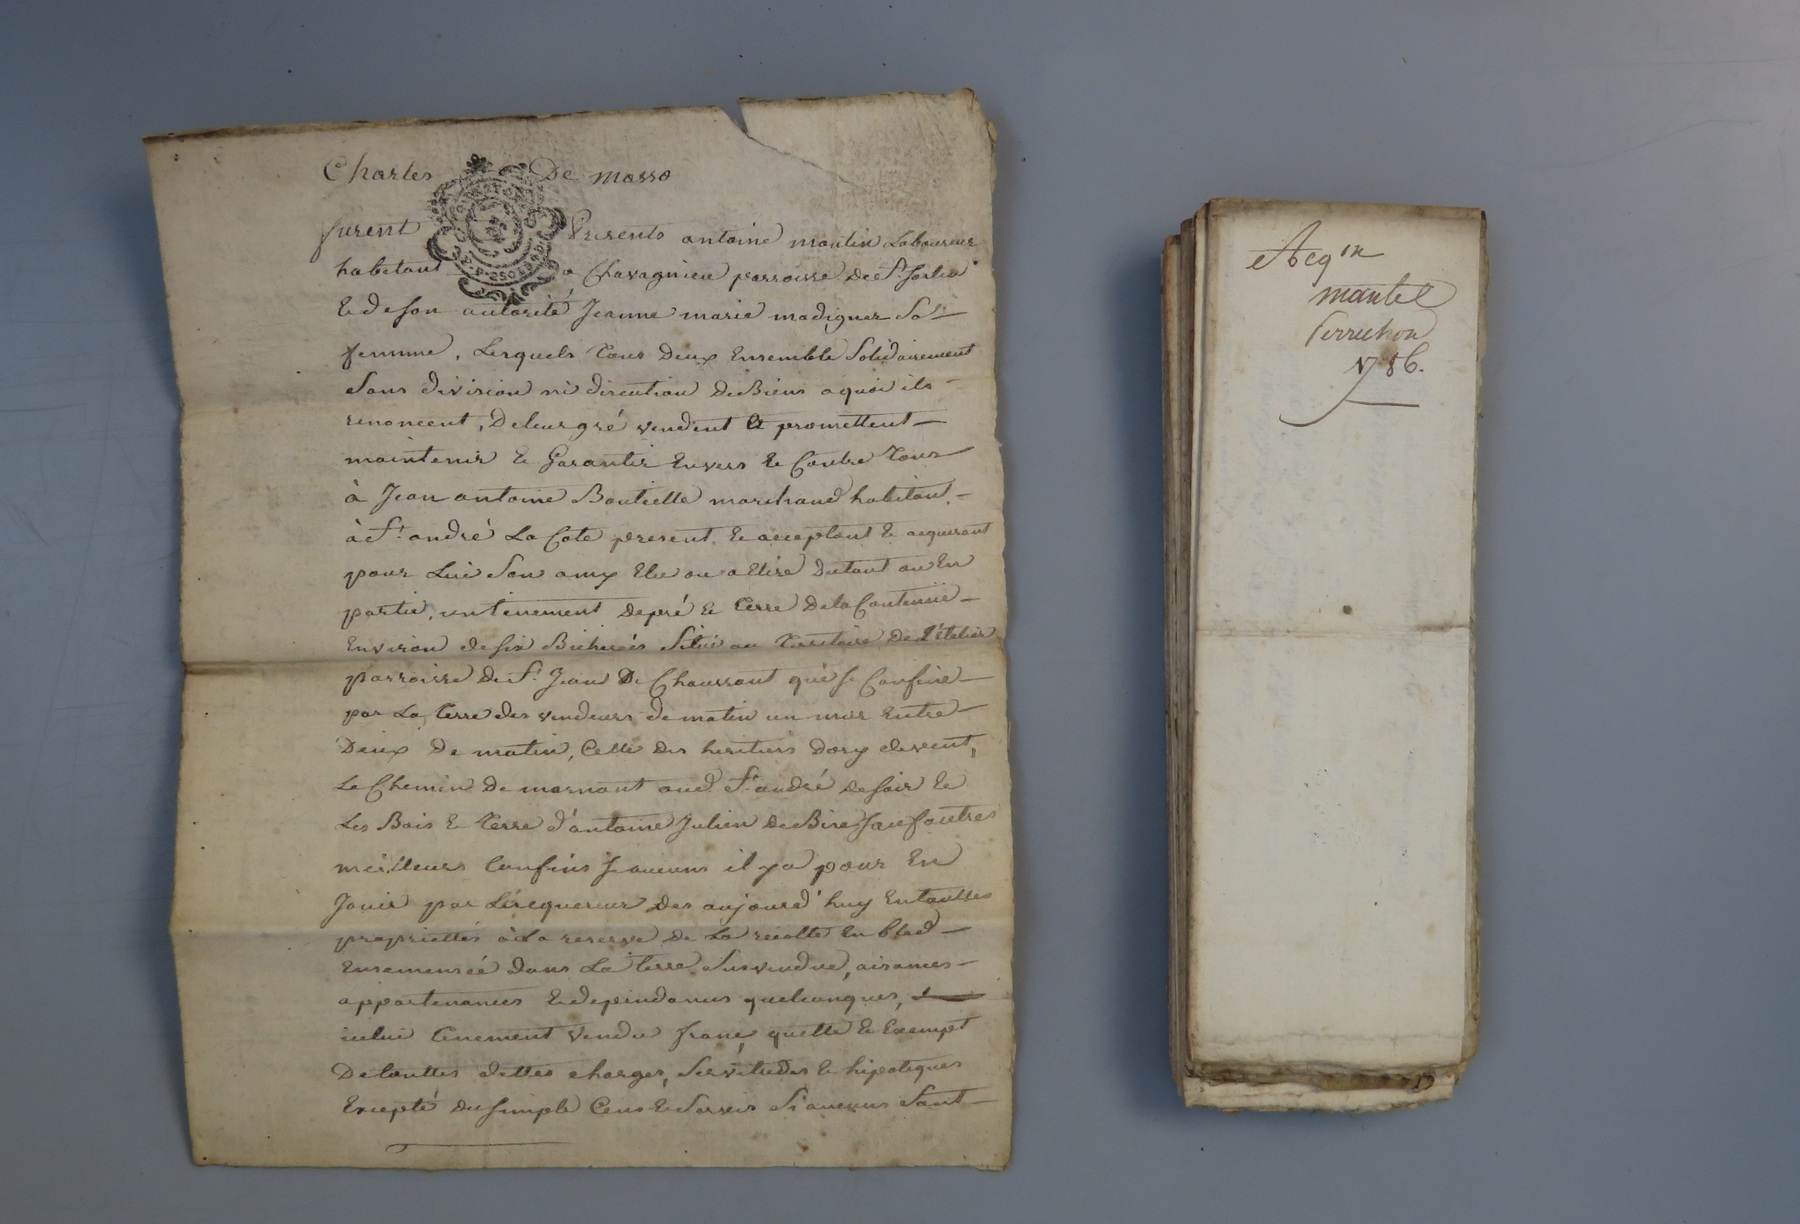 Charles De masso
furent Présents antoine moulin Laboureur
habitant a Chavagnieu parroisse de St Sorlin
& de son autorité Jeanne marie madignier Sa
femme, Lesquels Tous Deux Ensemble Solidairement
Sans division ni discution De Biens a quoi ils
renoncent, De leur gré vendent & promettent
maintenir & Garantir Envers & Contre Tous
à Jean antoine Boutielle marchand habitant
à St andré La Cote present & acceptant & acquerant
pour Lui Son amy Elu ou a Elire Du tout ou En
partie, un tenement de pré & terre De la Contenue
Environ de six Bicherées Situé au Territoire De
parroisse De St Jean De Chaussant qui se Confine
par La terre des vendeurs de matin un mur Entre
Deux De matin, Celle des heritiers Dory de vent,
Le Chemin De mornant aud. St andré de soir &
Les Bois & terre d'antoine Julien De Bire Sauf autres
meilleurs Confins Si aucuns il y a pour En
Jouir par L'acquereur Des aujourd'huy En touttes
proprietés à La reserve De La recolte En bled
Ensemencée dans La terre Susvendue, aisances
appartenances & dependances quelconques,
icelui tenement vendu franc, quitte & Exempt
De touttes dettes charges, Servitudes & hipoteques
Excepté Du Simple Cens & Servis Si aucuns Sont
250
Acqon
mantel
Perrichon
1786.